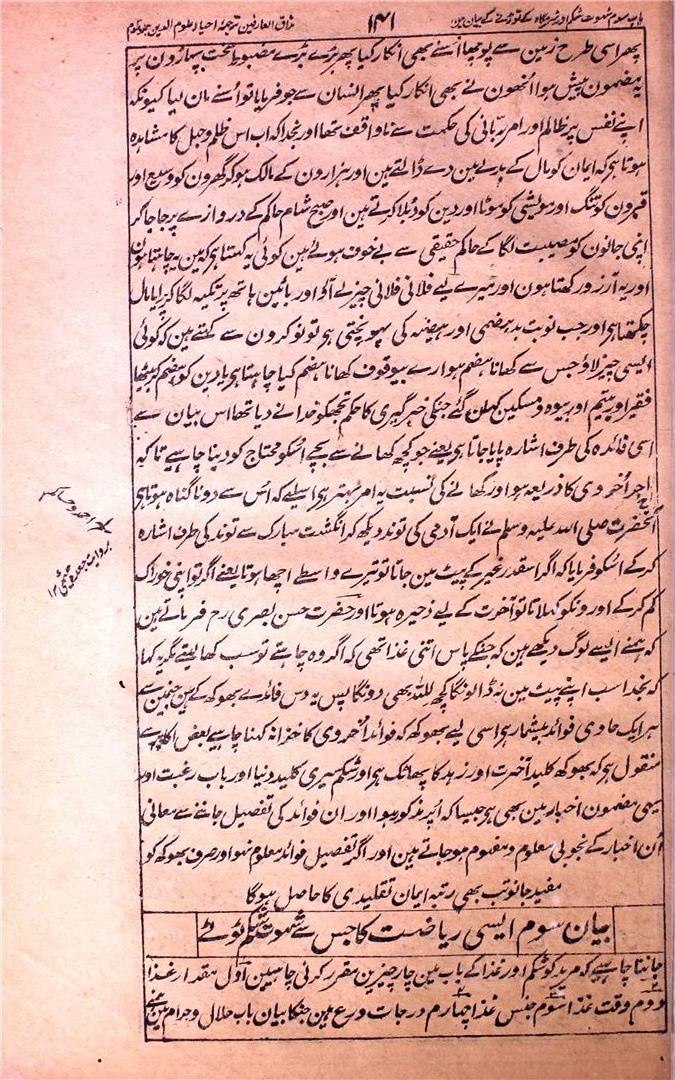 باب سوم شہوت شکم اور شرمگاہ کے توڑنے کے بیان مین
۱۴۱
مذاق العارفین ترجمہ احیاء علوم الدین جلد سوم
پھر اسی طرح زمین سے پوچھا اسنے بھی انکار کیا پھر بڑے بڑے مضبوط سخت پہاڑون پر
یہ مضمون پیش ہوا اُنھون نے بھی انکار کیا پھر انسان سے جو فرمایا تو اُسنے مان لیا کیونکہ
اپنے نفس پر ظالم اور امر ربّانی کی حکمت سے ناواقف تھا اور بخدا کہ اب اس ظلم و جہل کا مشاہدہ
ہوتا ہی کہ ایمان کو مال کے بدلے مین دے ڈالتے ہین اور ہزارون کے مالک ہو کر گھرون کو وسیع اور
قبرون کو تنگ اور مویشی کو موٹا اور دین کو دُبلا کرتے ہین اور صبح شام حاکم کے دروازے پر جا جا کر
اپنی جانون کو مصیبت لگا کے حاکم حقیقی سے بے خوف ہوئے ہین کوئی یہ کہتا ہی کہ مین یہ چاہتا ہون
اور یہ آرزو رکھتا ہون اور میرے لیے فلانی فلانی چیز لے آؤ اور بائین ہاتھ پر تکیہ لگا کر پرایا مال
چکھتا ہی اور جب نوبت بدہضمی اور ہیضہ کی پہونچتی ہی تو نوکرون سے کہتے ہین کہ کوئی
ایسی چیز لاؤ جس سے کھانا ہضم ہو ارے بیوقوف کھانا ہضم کیا چاہتا ہی یا دین کو ہضم کر بیٹھا
فقیر اور یتیم اور بیوہ و مسکین کہان گئے جنکی خبرگیری کا حکم تجھکو خدا نے دیا تھا اس بیان سے
اسی فائدہ کی طرف اشارہ پایا جاتا ہی یعنے جو کچھ کھانے سے بچے اُسکو محتاج کو دینا چاہیے تاکہ
اجر اُخروی کا ذریعہ ہو اور کھانے کی نسبت یہ امر بہتر ہی اسلیے کہ اُس سے دونا گناہ ہوتا ہی
آنحضرت صلی اللہ علیہ وسلم نے ایک آدمی کی توند دیکھ کر انگشت مبارک سے توند کی طرف اشارہ
کر کے اُسکو فرمایا کہ اگر اسقدر غیر کے پیٹ مین جاتا تو تیرے واسطے اچھا ہوتا یعنے اگر تو اپنی خوراک
کم کر کے اورونکو کھلاتا تو آخرت کے لیے ذخیرہ ہوتا اور حضرت حسن بصری رح فرماتے ہین
کہ ہمنے ایسے لوگ دیکھے ہین کہ جنکے پاس اتنی غذا تھی کہ اگر وہ چاہتے تو سب کھا لیتے مگر یہ کہا
کہ بخدا سب اپنے پیٹ مین نہ ڈالونگا کچھ للہ بھی دونگا پس یہ دس فائدے بھوکھ کے ہین جنمین سے
ہر ایک حاوی فوائد بیشمار ہی اسی لیے بھوکھ کو فوائد اُخروی کا خزانہ کہنا چاہیے بعض اکابر سے
منقول ہی کہ بھوکھ کلید آخرت اور زہد کا پھاٹک ہی اور شکم سیری کلید دنیا اور باب رغبت اور
یہی مضمون اخبار مین بھی ہی جیسا کہ اوپر مذکور ہوا اور ان فوائد کی تفصیل جاننے سے معانی
اُن اخبار کے بخوبی معلوم و مفہوم ہو جاتے ہین اور اگر تفصیل فوائد معلوم نہو اور صرف بھوکھ کو
مفید جانو تب بھی رتبہ ایمان تقلیدی کا حاصل ہوگا
بیان سوم ایسی ریاضت کا جس سے شہوت شکم ٹوٹے
جاننا چاہیے کہ مرید کو شکم اور غذا کے باب مین چار چیزین مقرر کرنی چاہیین اول مقدار غذا
دوم وقت غذا سوم جنس غذا چہارم درجات ورع ہین جنکا بیان باب حلال و حرام مین ہمنے
احمد و حاکم
بروایت جعدہ جشمی ۱۲